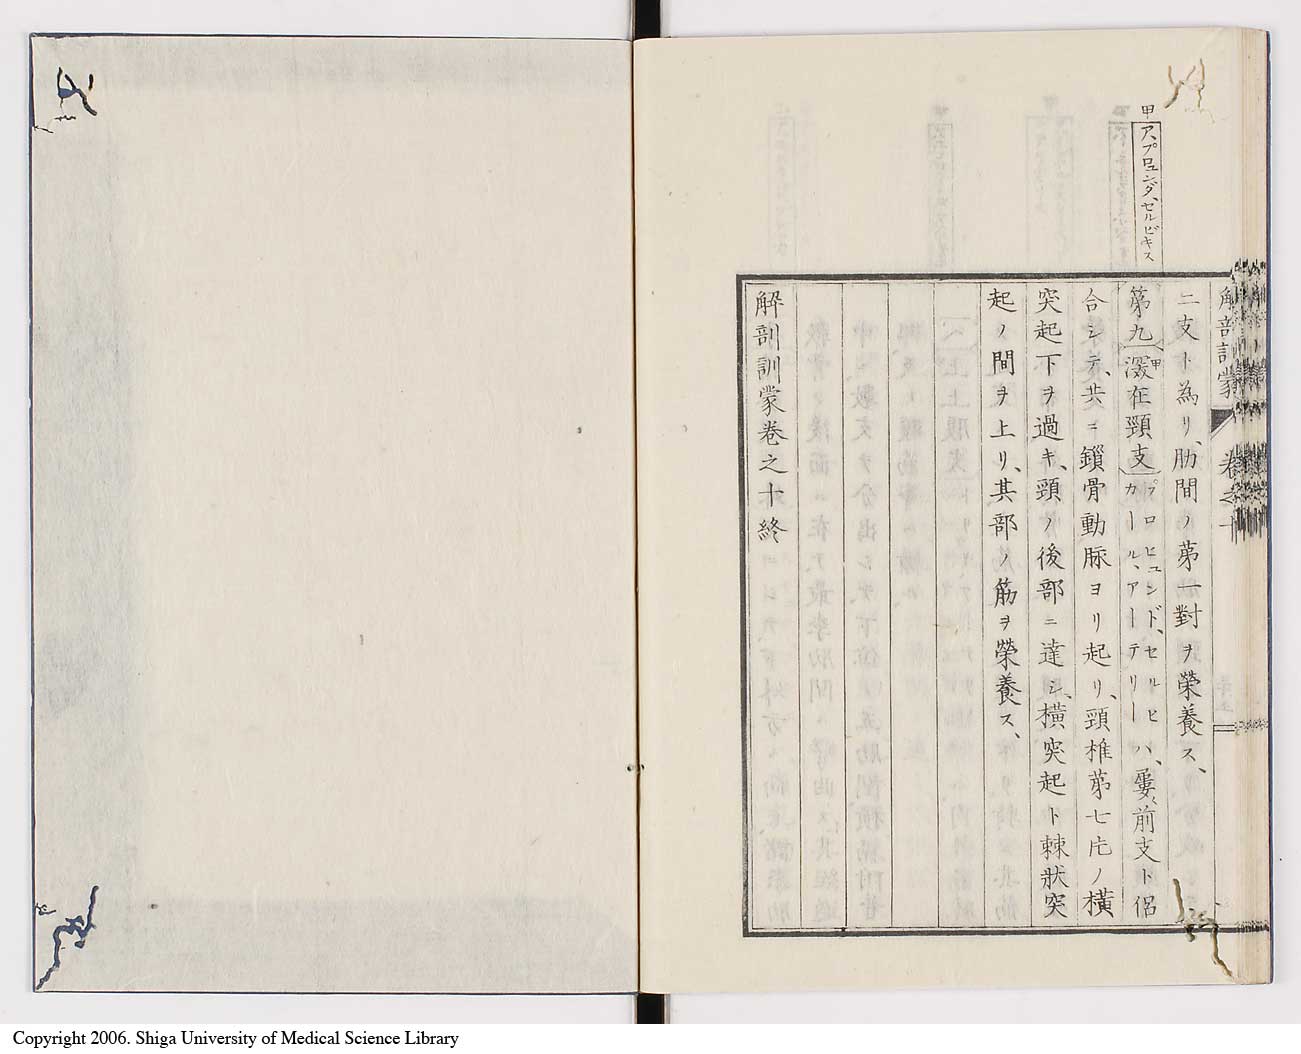 解剖訓蒙 卷之十
甲 ア、プロュンダ、セルビキス
二支ト為リ、肋間ノ第一對ヲ榮養ス、
第九 甲 深在頸支 プロヒュンド、セルヒカール、アーテリー ハ、屢〻前支ト侶
合シテ、共ニ鎖骨動脈ヨリ起リ、頸椎第七片ノ横
突起下ヲ過キ、頸ノ後部ニ達シ、横突起ト棘狀突
起ノ間ヲ上リ、其部ノ筋ヲ榮養ス、
解剖訓蒙卷之十終
Copyright 2006. Shiga University of Medical Science Library